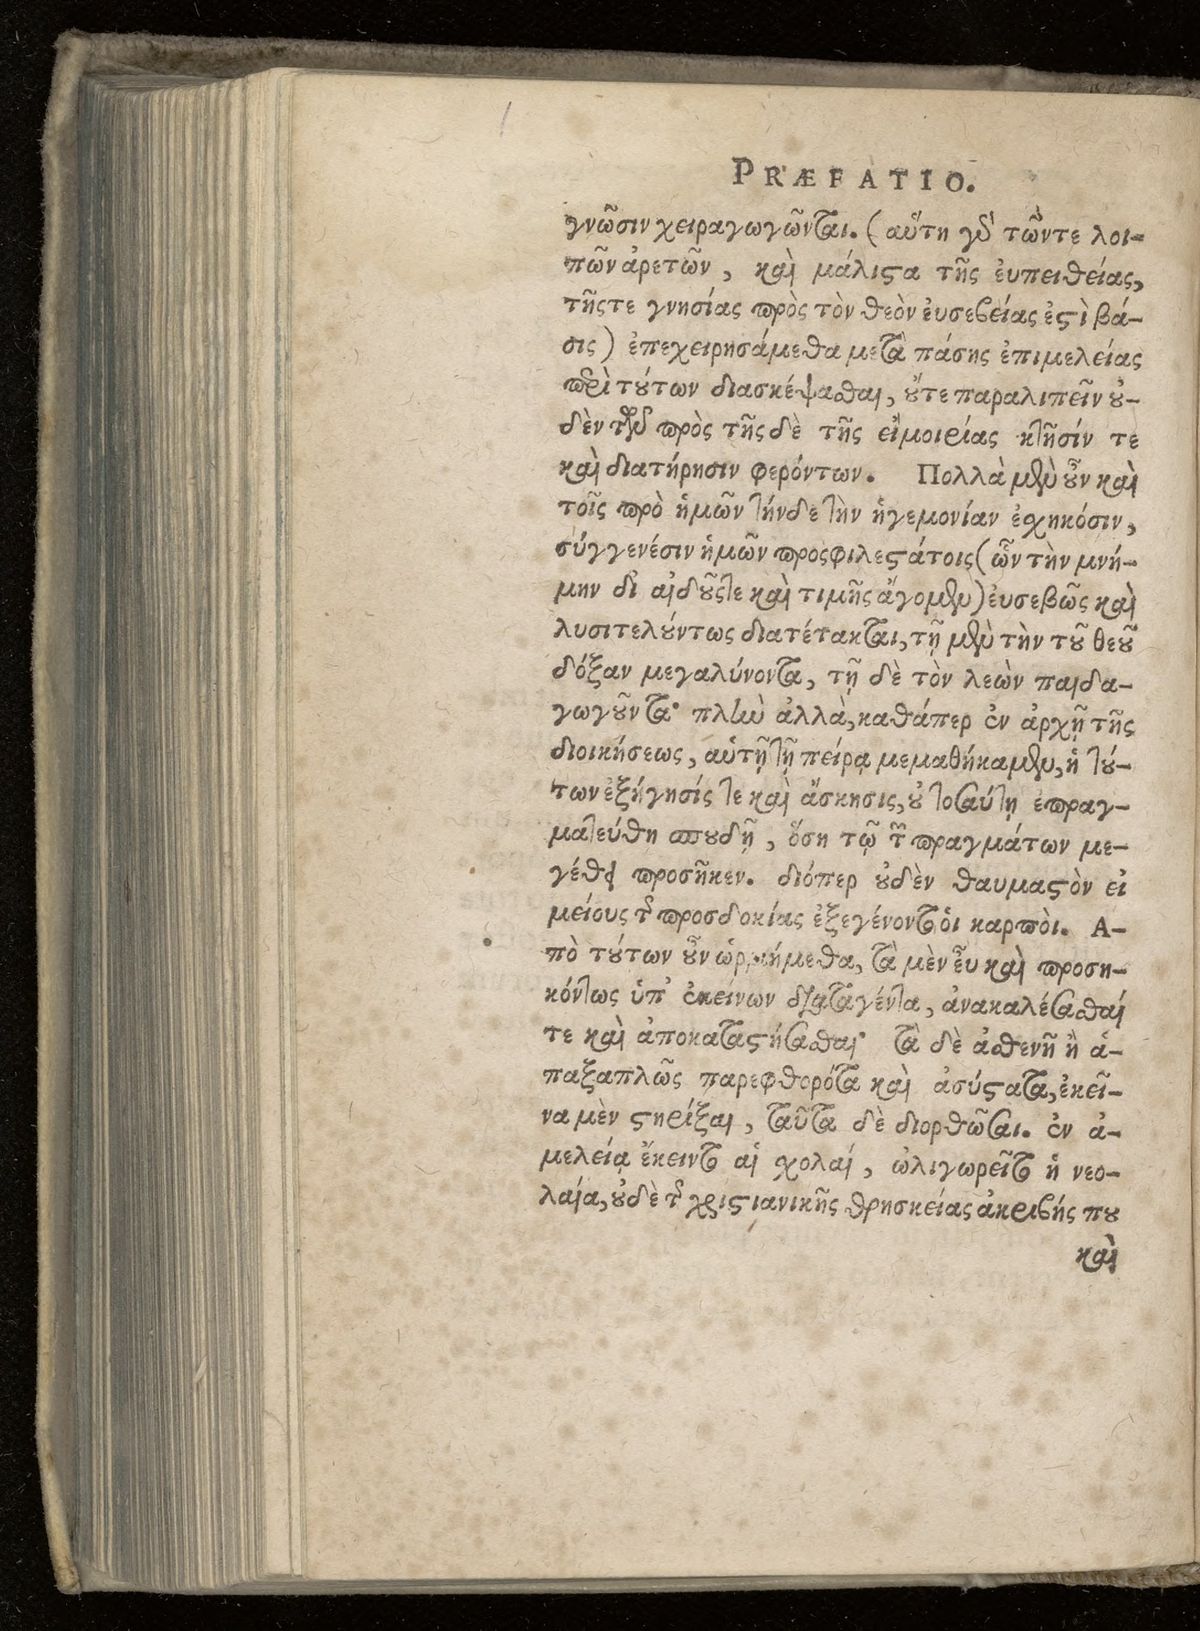 PRÆFATIO.
γνῶσιν χειραγωγῶνται. (αὕτη γὰρ τῶντε λοι-
πῶν ἀρετῶν, καὶ μάλιϛα τῆς ἐυπειθείας,
τῆςτε γνησίας πρὸς τὸν θεὸν ἐυσεβείας ἐϛὶ βά-
σις) ἐπεχειρησάμεθα μετὰ πάσης ἐπιμελείας
περὶ τȣ́των διασκέψασθαι, ȣ́τε παραλιπεῖν ȣ̓-
δὲν τῶν πρὸς τῆςδὲ τῆς εἰμοιρίας κτῆσίν τε
καὶ διατήρησιν φερόντων. Πολλὰ μὲν ȣ̓͂ν καὶ
τοῖς πρὸ ἡμῶν τήνδε τὴν ἡγεμονίαν ἐχηκόσιν,
σύγγενέσιν ἡμῶν προσφιλεϛάτοις (ὧν τὴν μνή-
μην δἰ αἰδȣ͂ς τε καὶ τιμῆς ἄγομεν) ἐυσεβῶς καὶ
λυσιτελȣ́ντως διατέτακται, τῇ μὲν τὴν τȣ͂ θεȣ͂
δόξαν μεγαλύνοντα, τῇ δὲ τὸν λεὼν παιδα-
γωγȣ͂ντα· πλὴν ἀλλὰ, καθάπερ ἐν ἀρχῇ τῆς
διοικήσεως, αὐτῇ τῇ πείρᾳ μεμαθήκαμεν, ἡ τȣ́-
των ἐξήγησίς τε καὶ ἄσκησις, ȣ̓ τοσαύτῃ ἐπραγ-
ματεύθη σπȣδῇ, ὅση τῷ τῶν πραγμάτων με-
γέθει προσῆκεν. διόπερ ȣ̓δὲν θαυμαϛὸν εἰ
μείους τῆς προσδοκίας ἐξεγένοντο ὁι καρπὸι. Α-
πὸ τȣ́των ȣ̓͂ν ὡρμήμεθα, τὰ μὲν ἐυ καὶ προση-
κόντως ὑπ' ἐκείνων διαταγέντα, ἀνακαλέσασθαί
τε καὶ ἀποκαταϛήσασθαι· τὰ δὲ ἀσθενῆ ἢ ἁ-
παξαπλῶς παρεφθορότα καὶ ἀσύϛατα, ἐκεῖ-
να μὲν ϛηρίξαι, ταῦτα δὲ διορθῶσαι. ἐν ἀ-
μελείᾳ ἔκειντο αἱ σχολαί, ὠλιγωρεῖτο ἡ νεο-
λαία, ȣ̓δὲ τῆς χριϛιανικῆς θρησκείας ἀκριβής πȣ
καὶ